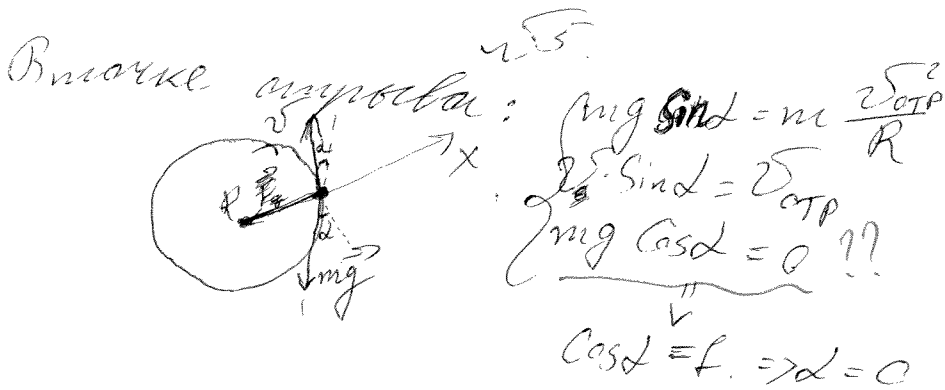 №5.
В точке отрыва:
mg sinα = m v²отр / R
v · sinα = vотр
mg cosα = 0 ??
cosα = 1. => α = 0
v
α
x
R
α
mg